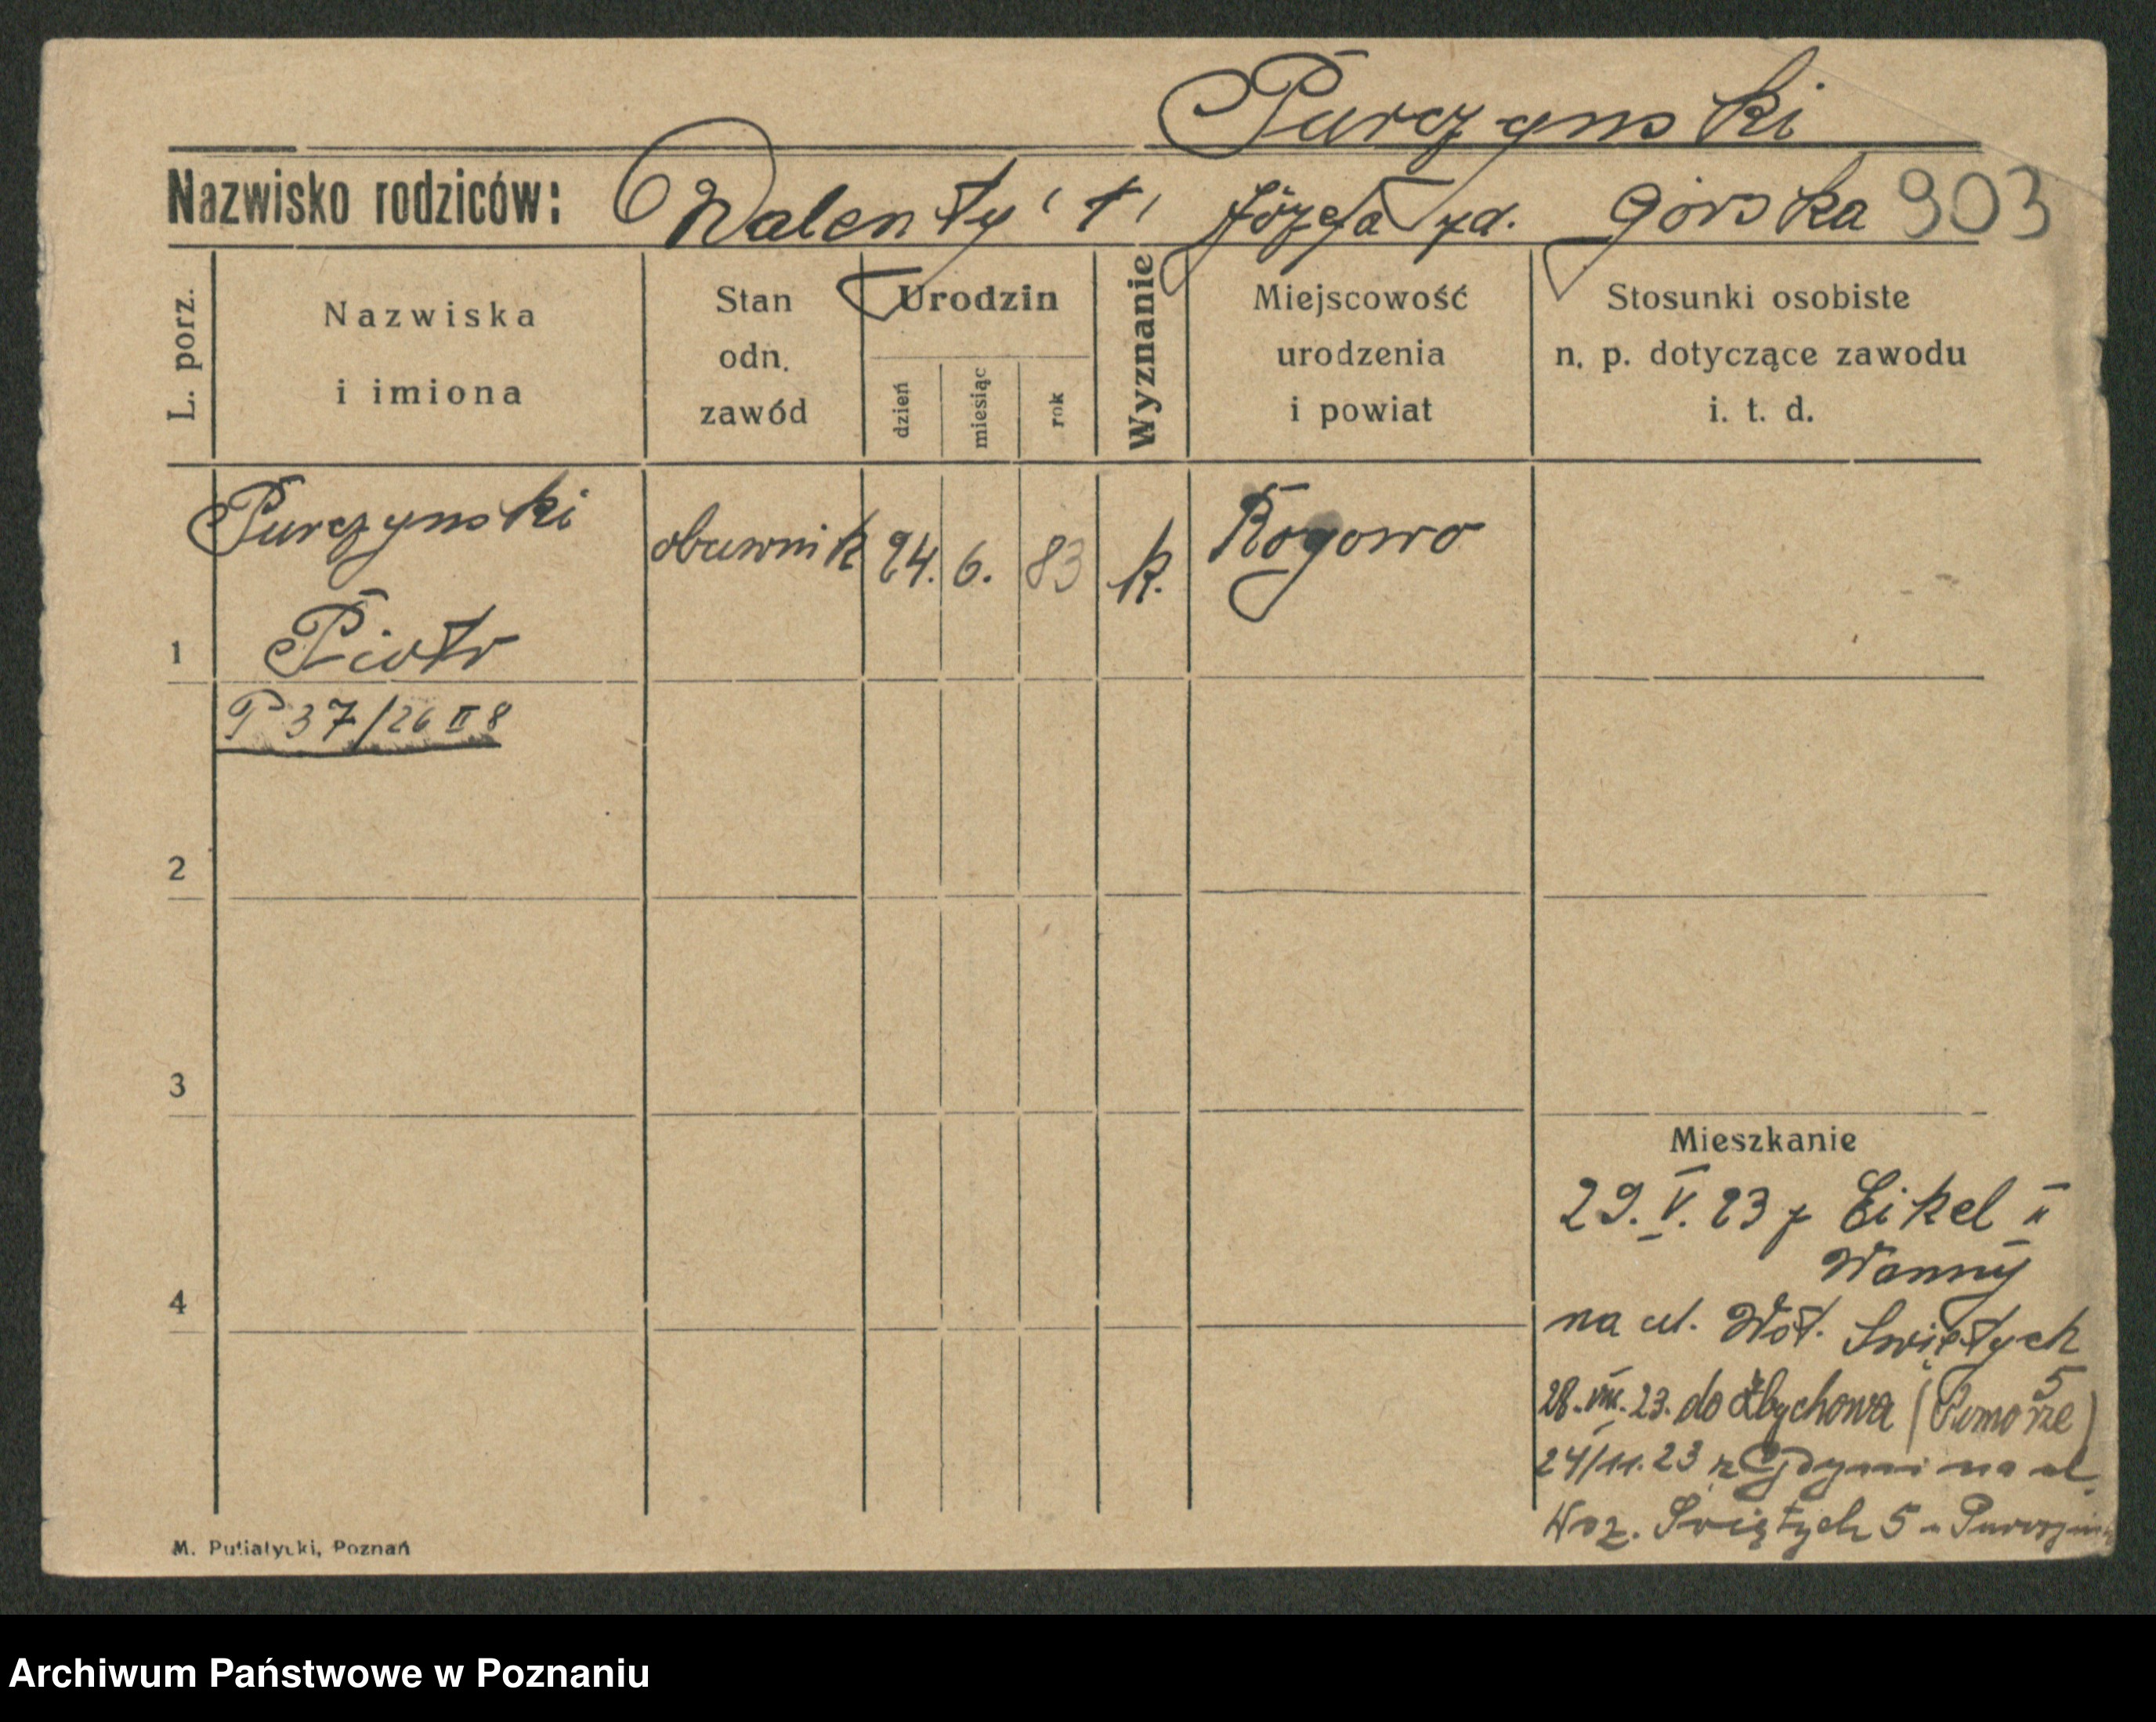 Purczynski
Nazwisko rodziców: Walenty (†) Józefa zd. Górska 903
L. porz.
Nazwiska
i imiona
Stan
odn.
zawód
Urodzin
dzień
miesiąc
rok
Wyznanie
Miejscowość
urodzenia
i powiat
Stosunki osobiste
n. p. dotyczące zawodu
i. t. d.
Purczynski obuwnik 24. 6. 83 k. Rogowo
1 Piotr
P 37/26 II 8
2
3
4
Mieszkanie
29. V. 23 z Eikel
Wanny
na ul. Świętych
5
28. VIII. 23. do Zbychowa (Pomorze)
24/11. 23 z Gdyni na ul.
Wsz. Świętych 5
M. Putiatycki, Poznań
Archiwum Państwowe w Poznaniu